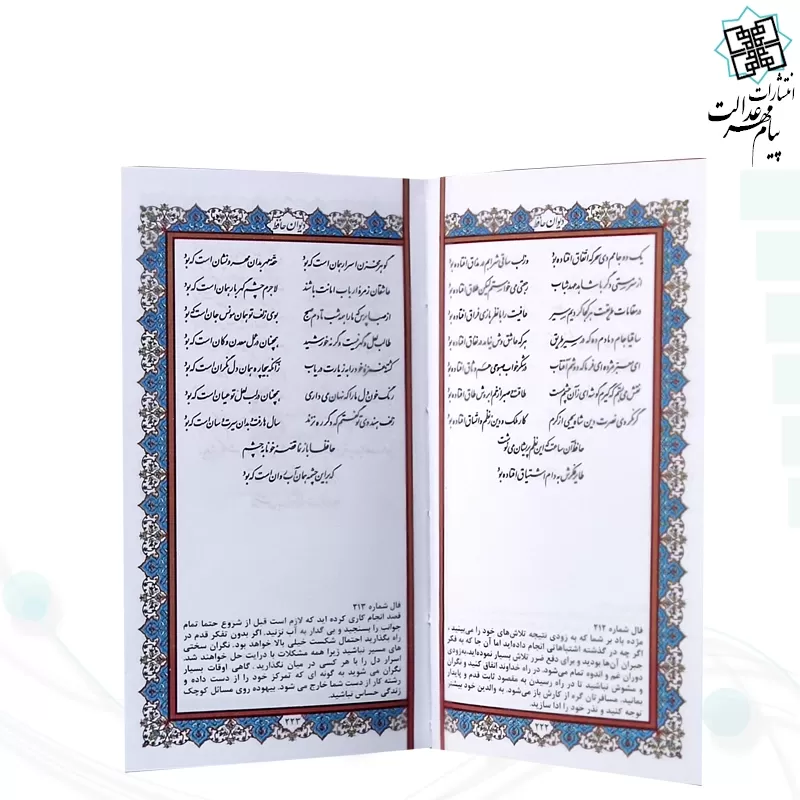 انتشارات
پیام مهر عدالت
دیوان حافظ
یک دو جامم دی سحرگه اتفاق افتاده بود	وز لب ساقی شرابم در مذاق افتاده بود
از سر مستی دگر با شاهد عهد شباب	رجعتی می‌خواستم لیکن طلاق افتاده بود
در مقامات طریقت هر کجا کردیم سیر	عافیت را با نظربازی فراق افتاده بود
ساقیا جام دمادم ده که در سیر طریق	هر که عاشق وش نیامد در نفاق افتاده بود
ای معبر مژده‌ای فرما که دوشم آفتاب	در شکرخواب صبوحی هم وثاق افتاده بود
نقش می‌بستم که گیرم گوشه‌ای زان چشم مست	طاقت و صبر از خم ابروش طاق افتاده بود
گر نکردی نصرت دین شاه یحیی از کرم	کار ملک و دین ز نظم و اتساق افتاده بود
حافظ آن ساعت که این نظم پریشان می‌نوشت
طایر فکرش به دام اشتیاق افتاده بود
فال شماره ۲۱۲
مژده باد بر شما که به زودی نتیجه تلاش‌های خود را می‌بینید ،
اگر چه در گذشته اشتباهاتی انجام داده‌اید اما آن جا که به فکر
جبران آن‌ها بودید و برای دفع ضرر تلاش بسیار نموده‌اید،به‌زودی
دوران غم و اندوه تمام می‌شود. در راه خداوند اتفاق کنید و نگران
و مشوش نباشید تا در راه رسیدن به مقصود ثابت قدم و پایدار
بمانید. مسافرتان گره از کارش باز می‌شود. به والدین خود بیشتر
توجه کنید و نذر خود را ادا سازید.
۲۲۲
دیوان حافظ
گوهر مخزن اسرار همان است که بود	حقه مهر بدان مهر و نشان است که بود
عاشقان زمره ارباب امانت باشند	لاجرم چشم گهربار همان است که بود
از صبا پرس که ما را همه شب تا دم صبح	بوی زلف تو همان مونس جان است که بود
طالب لعل و گهر نیست وگرنه خورشید	همچنان در عمل معدن و کان است که بود
کشته غمزه خود را به زیارت دریاب	زانکه بیچاره همان دل نگران است که بود
رنگ خون دل ما را که نهان می‌داری	همچنان در لب لعل تو عیان است که بود
زلف هندوی تو گفتم که دگر ره نزند	سال‌ها رفت و بدان سیرت و سان است که بود
حافظا باز نما قصه خونابه چشم
که بر این چشمه همان آب روان است که بود
فال شماره ۲۱۳
قصد انجام کاری کرده اید که لازم است قبل از شروع حتما تمام
جوانب را بسنجید و بی گدار به آب نزنید. اگر بدون تفکر قدم در
راه بگذارید احتمال شکست خیلی بالا خواهد بود. نگران سختی
های مسیر نباشید زیرا همه مشکلات با درایت حل خواهند شد.
اسرار دل را با هر کسی در میان نگذارید. گاهی اوقات بسیار
نگران می شوید به گونه ای که تمرکز خود را از دست داده و
رشته کار از دست شما خارج می شود. بیهوده روی مسائل کوچک
زندگی حساس نباشید.
۲۲۳